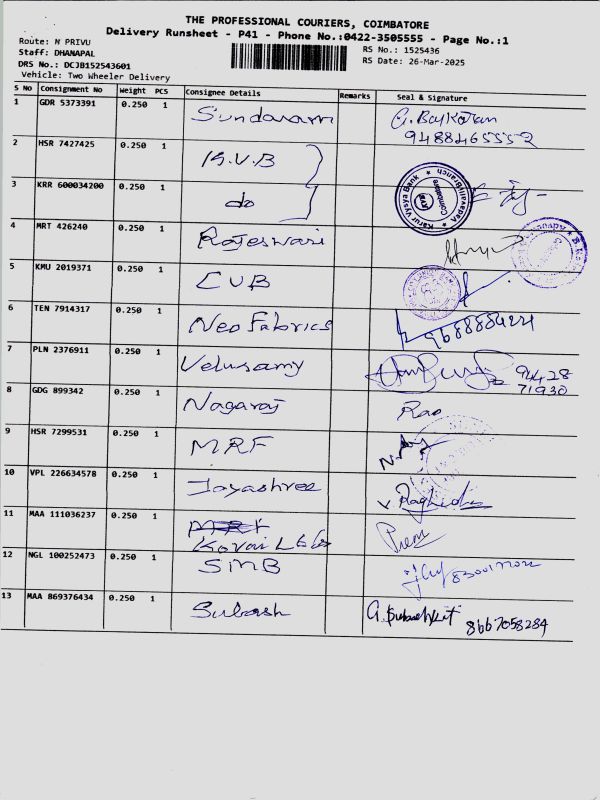 THE PROFESSIONAL COURIERS, COIMBATORE
Delivery Runsheet - P41 - Phone No.:0422-3505555 - Page No.:1
Route: N PRIVU
Staff: DHANAPAL
DRS No.: DCJB152543601
Vehicle: Two Wheeler Delivery
RS No.: 1525436
RS Date: 26-Mar-2025
S No Consignment No Weight PCS Consignee Details Remarks Seal & Signature
1 GDR 5373391 0.250 1 Sundaram
9488465552
2 HSR 7427425 0.250 1 K.V.B
3 KRR 600034200 0.250 1 do
Karur Vysya Bank
Coimbatore
4 MRT 426240 0.250 1 Rajeswari
5 KMU 2019371 0.250 1 CUB
6 TEN 7914317 0.250 1 Neo Fabrics
7 PLN 2376911 0.250 1 Velusamy 94428
71930
8 GDG 899342 0.250 1 Nagaraj Rao
9 HSR 7299531 0.250 1 MRF
10 VPL 226634578 0.250 1 Jayashree
11 MAA 111036237 0.250 1
Kovai
Prem
12 NGL 100252473 0.250 1 SMB
13 MAA 869376434 0.250 1 Subash 8667058284